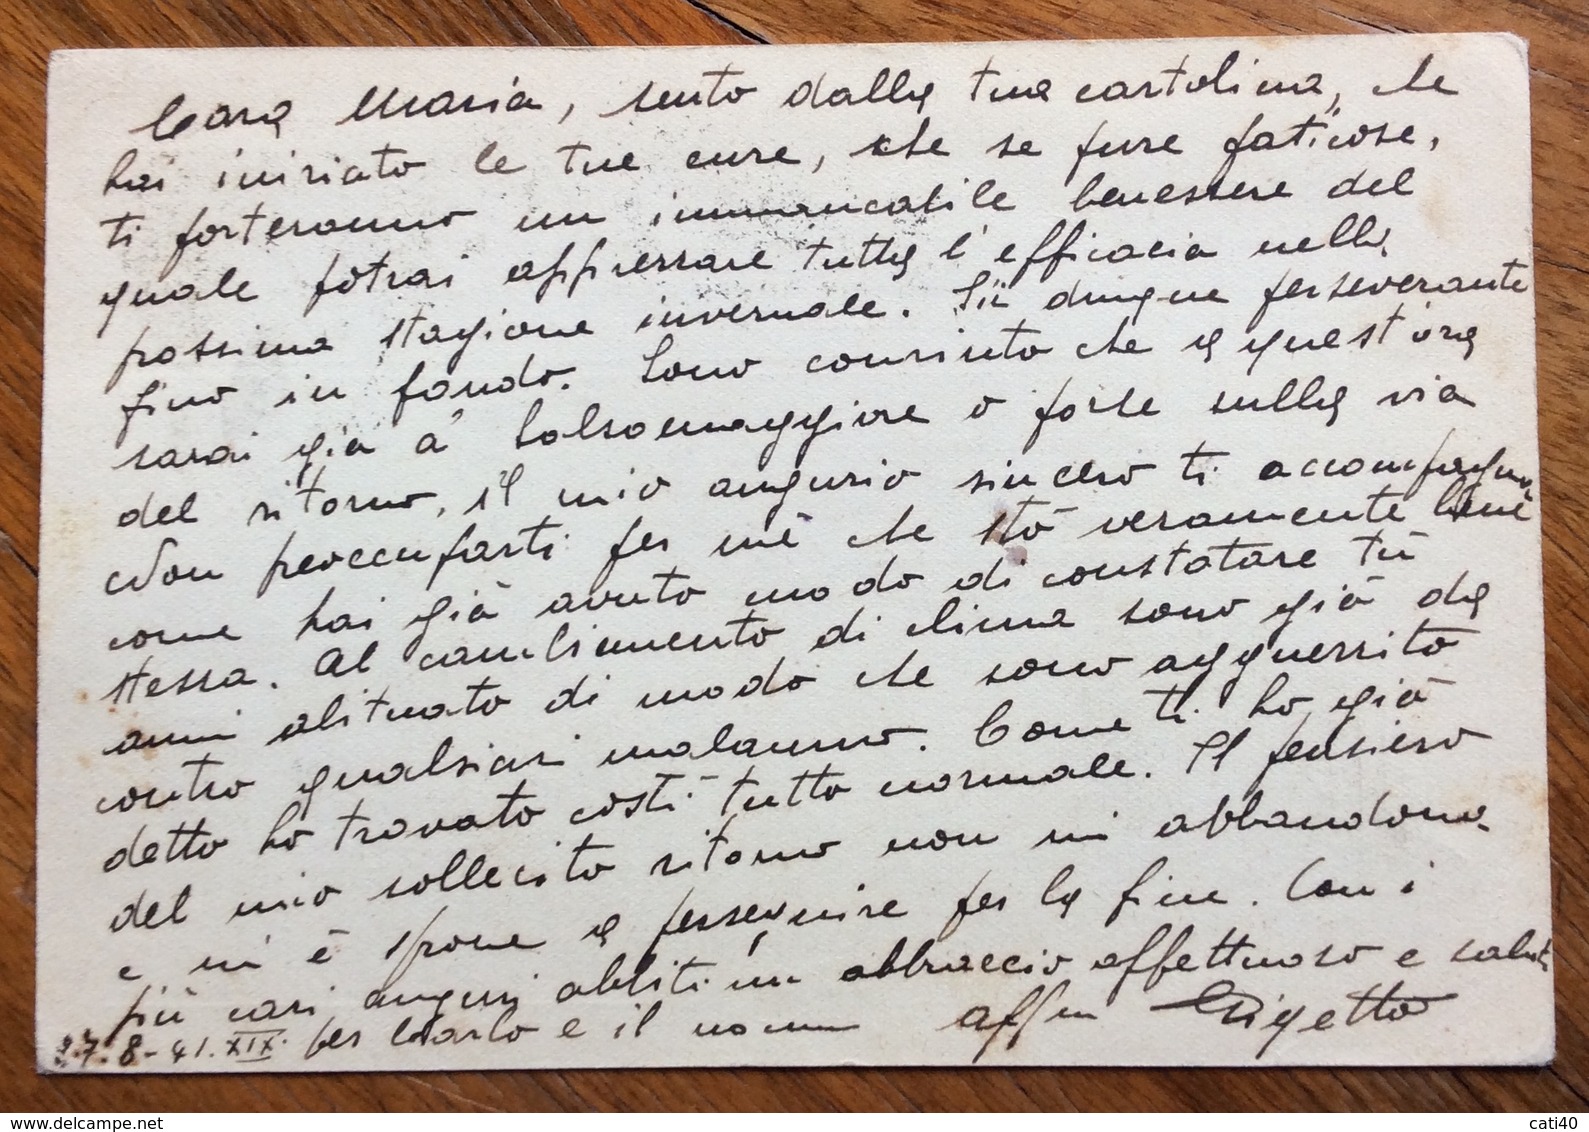 Cara Maria, sento dalla tua cartolina, che
hai iniziato le tue cure, che se pure faticose,
ti porteranno un immancabile benessere del
quale potrai apprezzare tutta l'efficacia nella
prossima stagione invernale. Sii dunque perseverante
fino in fondo. Sono convinto che a quest'ora
sarai già a Salsomaggiore o forse sulla via
del ritorno, il mio augurio sincero ti accompagna.
Non preoccuparti per mè che stò veramente bene
come hai già avuto modo di constatare tù
stessa. Al cambiamento di clima sono già da
anni abituato di modo che sono agguerrito
contro qualsiasi malanno. Come ti ho già
detto ho trovato costì tutto normale. Il pensiero
del mio sollecito ritorno non mi abbandona
e mi è sprone a perseguire per la fine. Con i
più cari auguri abbiti un abbraccio affettuoso e saluti
27.8-41.XIX. per Carlo e il affmo Gigetto
www.delcampe.net
cati40